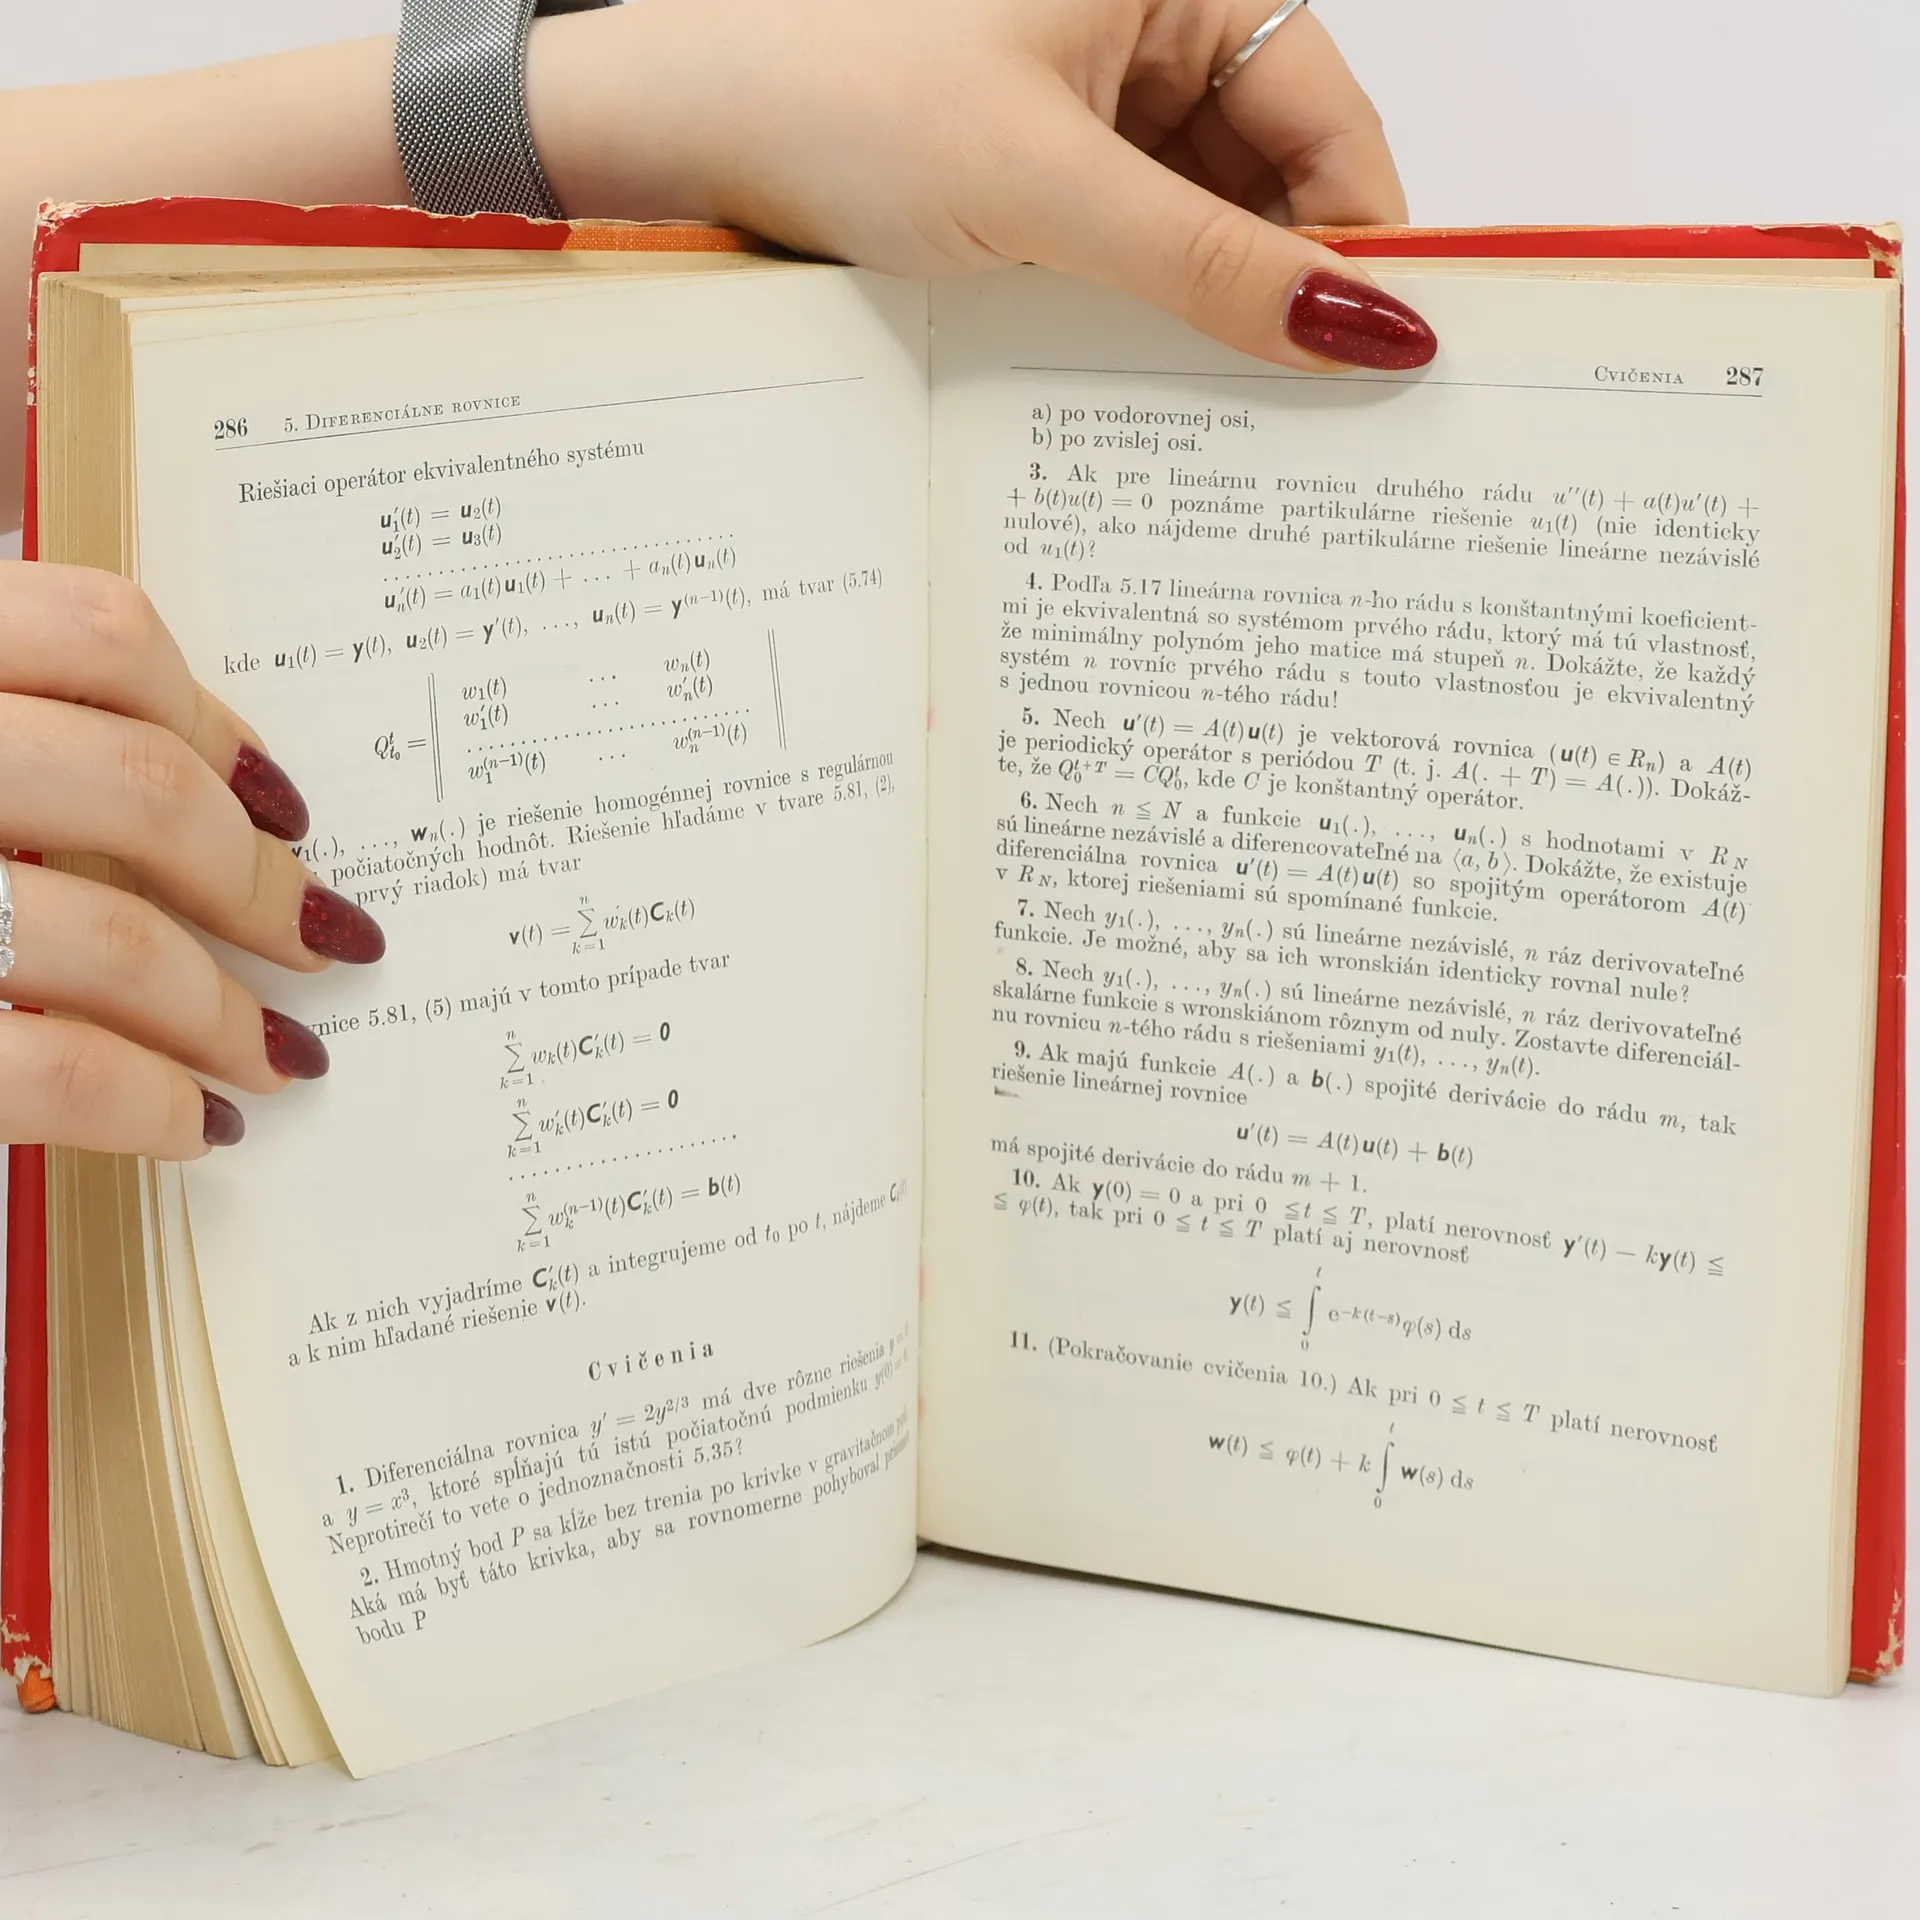 286 5. DIFERENCIÁLNE ROVNICE
Riešiaci operátor ekvivalentného systému
u₁′(t) = u₂(t)
u₂′(t) = u₃(t)
. . . . . . . . . . . . . . . . . . . . . . . . . . . . . . . . .
uₙ′(t) = a₁(t)u₁(t) + ... + aₙ(t)uₙ(t)
kde u₁(t) = y(t), u₂(t) = y′(t), ..., uₙ(t) = y⁽ⁿ⁻¹⁾(t), má tvar (5.74)
w₁(t) ... wₙ(t)
w₁′(t) ... wₙ′(t)
Qᵗₜ₀ = . . . . . . . . . . . . . . . . . . . . . . . . . .
w₁⁽ⁿ⁻¹⁾(t) ... wₙ⁽ⁿ⁻¹⁾(t)
₁(.), ..., wₙ(.) je riešenie homogénnej rovnice s regulárnou
počiatočných hodnôt. Riešenie hľadáme v tvare 5.81, (2),
prvý riadok) má tvar
v(t) = ∑ₖ₌₁ⁿ wₖ(t)Cₖ(t)
5.81, (5) majú v tomto prípade tvar
∑ₖ₌₁ⁿ wₖ(t)Cₖ′(t) = 0
∑ₖ₌₁ⁿ wₖ′(t)Cₖ′(t) = 0
. . . . . . . . . . . . . . . . . . .
∑ₖ₌₁ⁿ wₖ⁽ⁿ⁻¹⁾(t)Cₖ′(t) = b(t)
Ak z nich vyjadríme Cₖ′(t) a integrujeme od t₀ po t, nájdeme
a k nim hľadané riešenie v(t).
Cvičenia
1. Diferenciálna rovnica y′ = 2y²ᐟ³ má dve rôzne riešenia y =
a y = x³, ktoré spĺňajú tú istú počiatočnú podmienku y(0) =
Neprotirečí to vete o jednoznačnosti 5.35?
2. Hmotný bod P sa kĺže bez trenia po krivke v gravitačnom
Aká má byť táto krivka, aby sa rovnomerne pohyboval
bodu P
CVIČENIA 287
a) po vodorovnej osi,
b) po zvislej osi.
3. Ak pre lineárnu rovnicu druhého rádu u′′(t) + a(t)u′(t) +
+ b(t)u(t) = 0 poznáme partikulárne riešenie u₁(t) (nie identicky
nulové), ako nájdeme druhé partikulárne riešenie lineárne nezávislé
od u₁(t)?
4. Podľa 5.17 lineárna rovnica n-ho rádu s konštantnými koeficient-
mi je ekvivalentná so systémom prvého rádu, ktorý má tú vlastnosť,
že minimálny polynóm jeho matice má stupeň n. Dokážte, že každý
systém n rovníc prvého rádu s touto vlastnosťou je ekvivalentný
s jednou rovnicou n-tého rádu!
5. Nech u′(t) = A(t)u(t) je vektorová rovnica (u(t) ∈ Rₙ) a A(t)
je periodický operátor s periódou T (t. j. A(. + T) = A(.)). Dokáž-
te, že Q₀ᵗ⁺ᵀ = CQ₀ᵗ, kde C je konštantný operátor.
6. Nech n ≦ N a funkcie u₁(.), ..., uₙ(.) s hodnotami v R_N
sú lineárne nezávislé a diferencovateľné na ⟨a, b⟩. Dokážte, že existuje
diferenciálna rovnica u′(t) = A(t)u(t) so spojitým operátorom A(t)
v R_N, ktorej riešeniami sú spomínané funkcie.
7. Nech y₁(.), ..., yₙ(.) sú lineárne nezávislé, n ráz derivovateľné
funkcie. Je možné, aby sa ich wronskián identicky rovnal nule?
8. Nech y₁(.), ..., yₙ(.) sú lineárne nezávislé, n ráz derivovateľné
skalárne funkcie s wronskiánom rôznym od nuly. Zostavte diferenciál-
nu rovnicu n-tého rádu s riešeniami y₁(t), ..., yₙ(t).
9. Ak majú funkcie A(.) a b(.) spojité derivácie do rádu m, tak
riešenie lineárnej rovnice
u′(t) = A(t)u(t) + b(t)
má spojité derivácie do rádu m + 1.
10. Ak y(0) = 0 a pri 0 ≦ t ≦ T, platí nerovnosť y′(t) — ky(t) ≦
≦ φ(t), tak pri 0 ≦ t ≦ T platí aj nerovnosť
y(t) ≦ ∫₀ᵗ e⁻ᵏ⁽ᵗ⁻ˢ⁾φ(s) ds
11. (Pokračovanie cvičenia 10.) Ak pri 0 ≦ t ≦ T platí nerovnosť
w(t) ≦ φ(t) + k ∫₀ᵗ w(s) ds